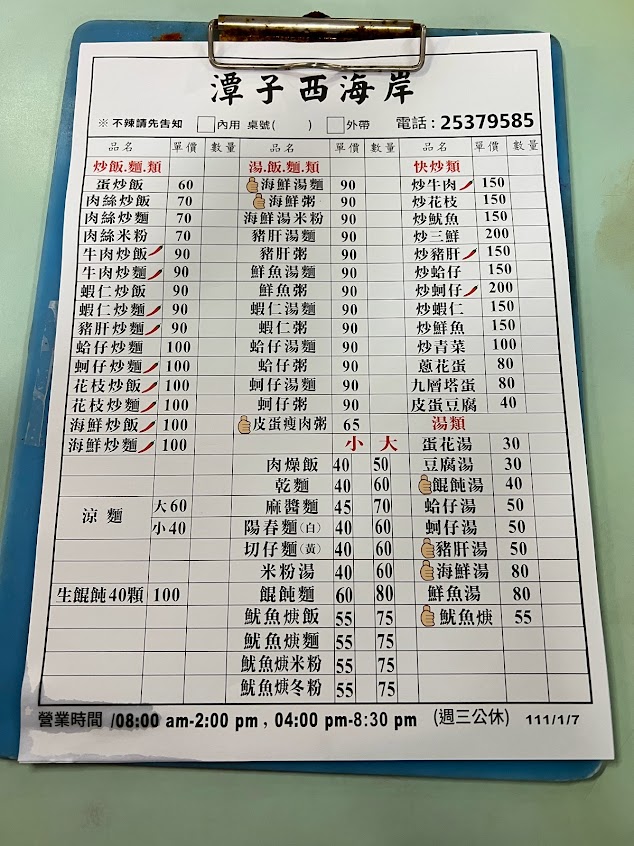 潭子西海岸
※ 不辣請先告知 內用 桌號( ) 外帶 電話:25379585
品名 單價 數量 品名 單價 數量 品名 單價 數量
炒飯.麵.類 湯.飯.麵.類 快炒類
蛋炒飯 60 海鮮湯麵 90 炒牛肉 150
肉絲炒飯 70 海鮮粥 90 炒花枝 150
肉絲炒麵 70 海鮮湯米粉 90 炒魷魚 150
肉絲米粉 70 豬肝湯麵 90 炒三鮮 200
牛肉炒飯 90 豬肝粥 90 炒豬肝 150
牛肉炒麵 90 鮮魚湯麵 90 炒蛤仔 150
蝦仁炒飯 90 鮮魚粥 90 炒蚵仔 200
蝦仁炒麵 90 蝦仁湯麵 90 炒蝦仁 150
豬肝炒麵 90 蝦仁粥 90 炒鮮魚 150
蛤仔炒麵 100 蛤仔湯麵 90 炒青菜 100
蚵仔炒麵 100 蛤仔粥 90 蔥花蛋 80
花枝炒飯 100 蚵仔湯麵 90 九層塔蛋 80
花枝炒麵 100 蚵仔粥 90 皮蛋豆腐 40
海鮮炒飯 100 皮蛋瘦肉粥 65 湯類
海鮮炒麵 100 小 大 蛋花湯 30
肉燥飯 40 50 豆腐湯 30
乾麵 40 60 餛飩湯 40
涼麵 大60 麻醬麵 45 70 蛤仔湯 50
小40 陽春麵(白) 40 60 蚵仔湯 50
切仔麵(黃) 40 60 豬肝湯 50
米粉湯 40 60 海鮮湯 80
生餛飩40顆 100 餛飩麵 60 80 鮮魚湯 80
魷魚焿飯 55 75 魷魚焿 55
魷魚焿麵 55 75
魷魚焿米粉 55 75
魷魚焿冬粉 55 75
營業時間 /08:00 am-2:00 pm , 04:00 pm-8:30 pm (週三公休) 111/1/7